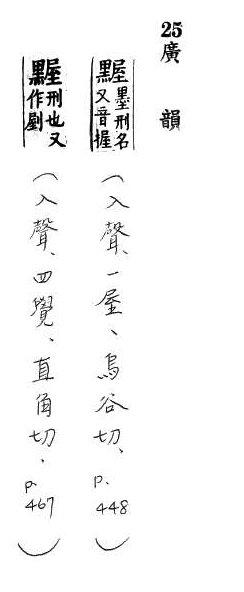 25 廣韻
𪑱墨刑名又音握(入聲、一屋、烏谷切、p.448)
𪑱刑也又作剭(入聲、四覺、直角切、p.467)